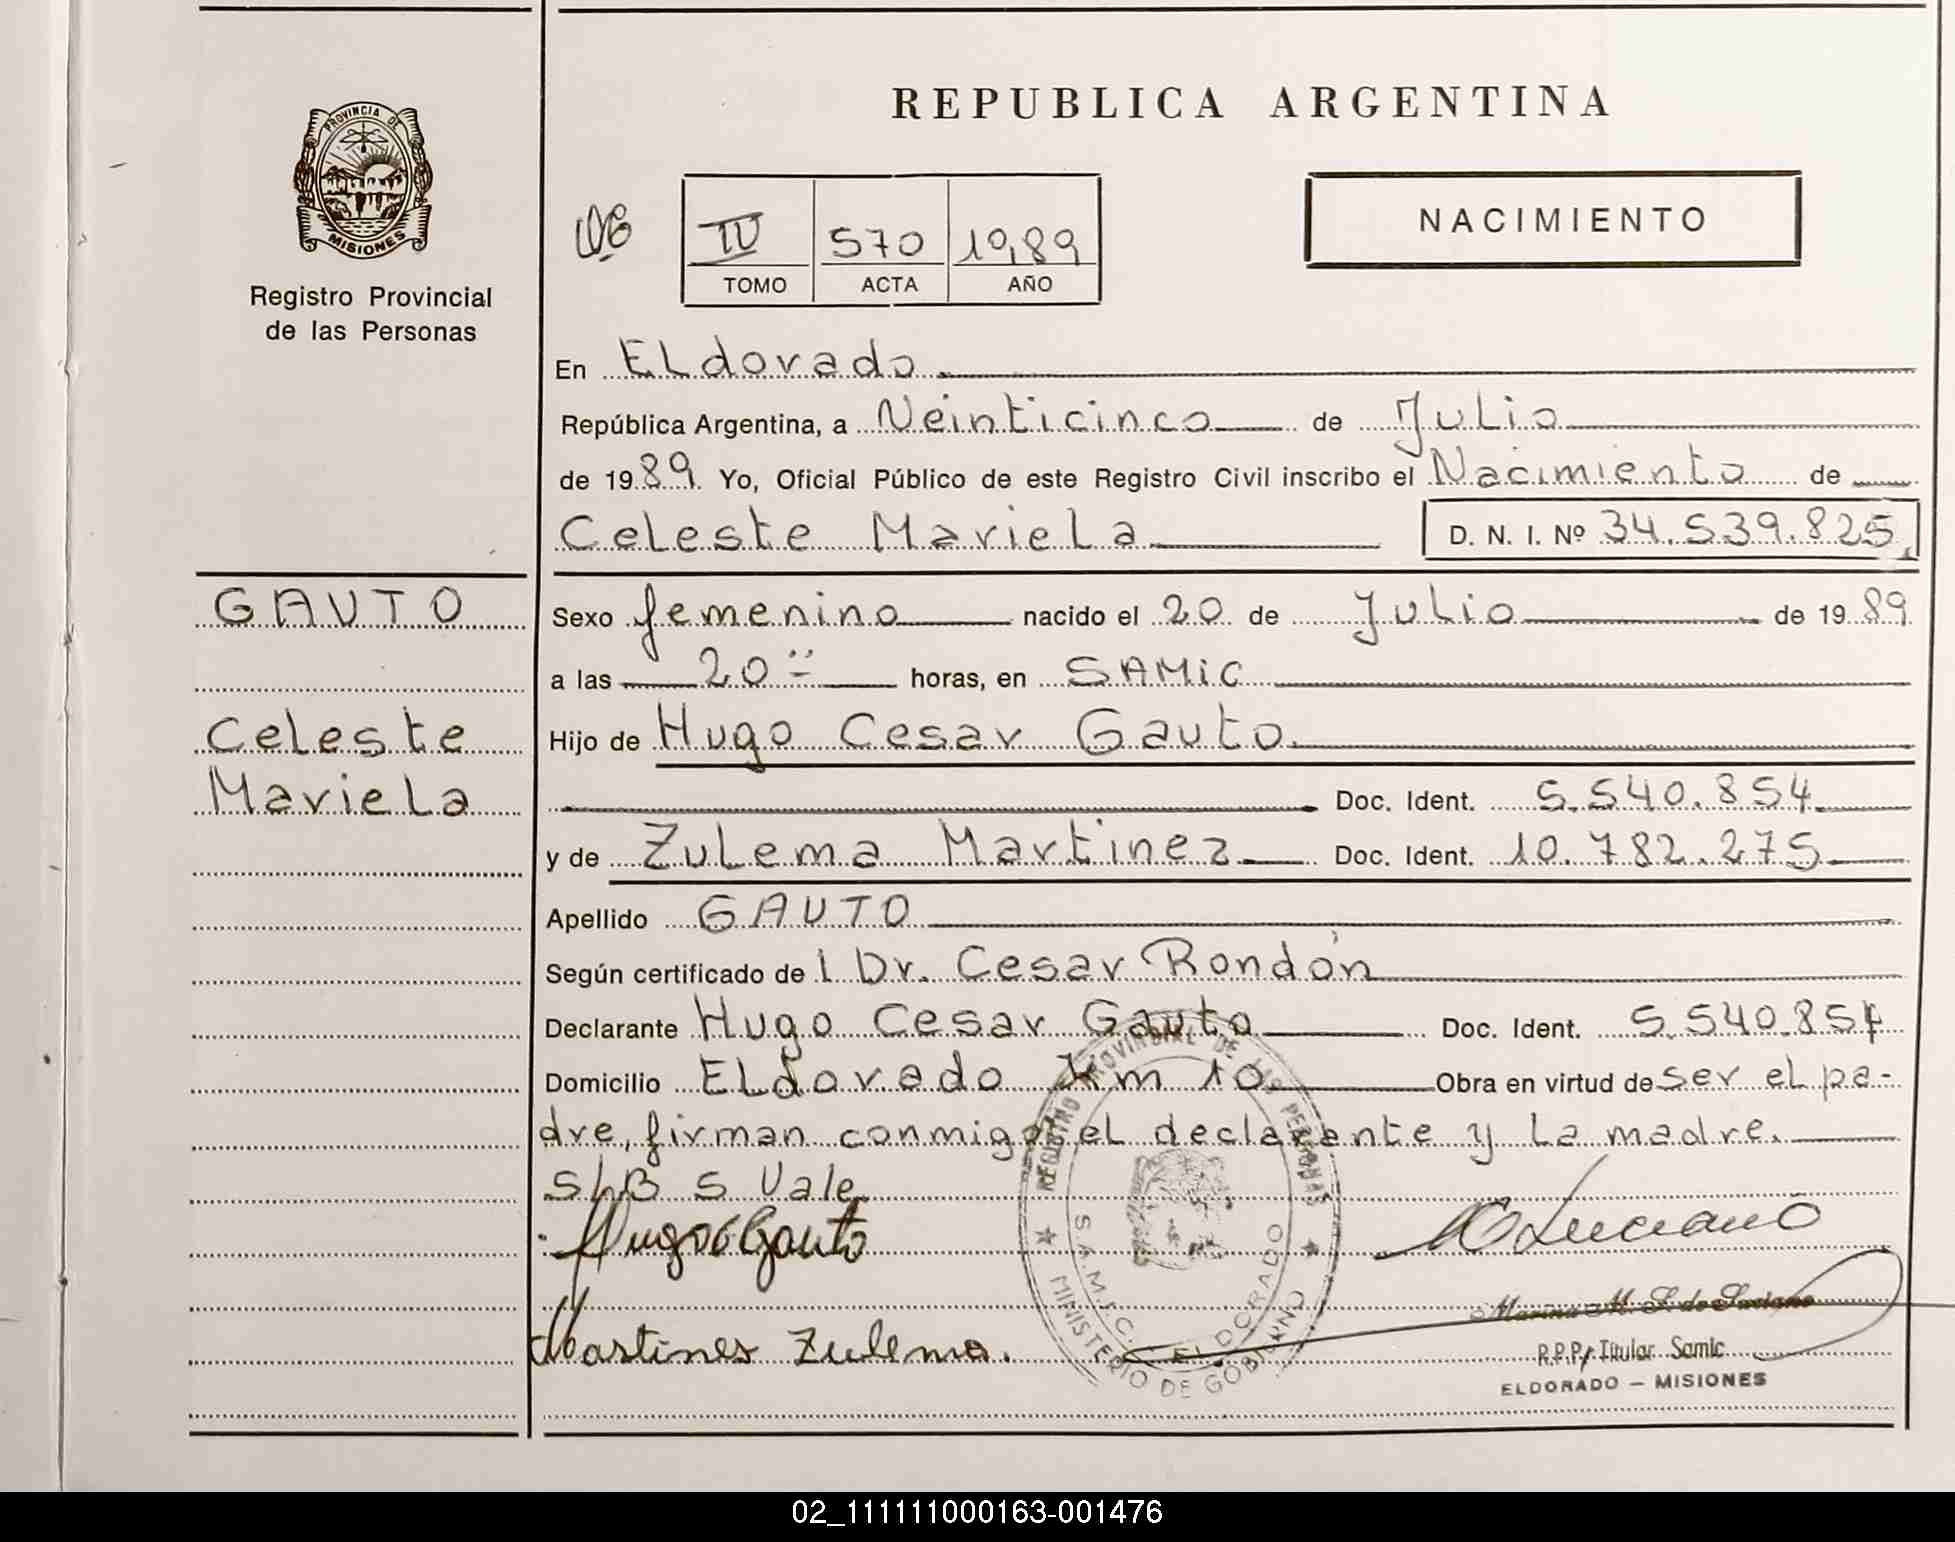 REPUBLICA ARGENTINA
PROVINCIA DE
MISIONES
Registro Provincial
de las Personas
IV 570 1989
TOMO ACTA AÑO
NACIMIENTO
En ELdorado
República Argentina, a Veinticinco de Julio
de 1989 Yo, Oficial Público de este Registro Civil inscribo el Nacimiento de
Celeste Mariela D. N. I. Nº 34.539.825
GAUTO
Celeste
Mariela
Sexo femenino nacido el 20 de Julio de 1989
a las 20 horas, en SAMIC
Hijo de Hugo Cesar Gauto
Doc. Ident. 5.540.854
y de Zulema Martinez Doc. Ident. 10.782.275
Apellido GAUTO
Según certificado de l Dr. Cesar Rondón
Declarante Hugo Cesar Gauto Doc. Ident. 5.540.854
Domicilio ELdorado Km 10 Obra en virtud de ser el pa-
dre, firman conmigo el declarante y la madre.
S/B 5 Vale
Hugo C Gauto
Martines Zulema.
REGISTRO PROVINCIAL DE LAS PERSONAS
S.A.M.I.C. ELDORADO
MINISTERIO DE GOBIERNO
Luciano
Marina M. S. de Luciano
R.P.P. Titular Samic
ELDORADO – MISIONES
02_111111000163-001476